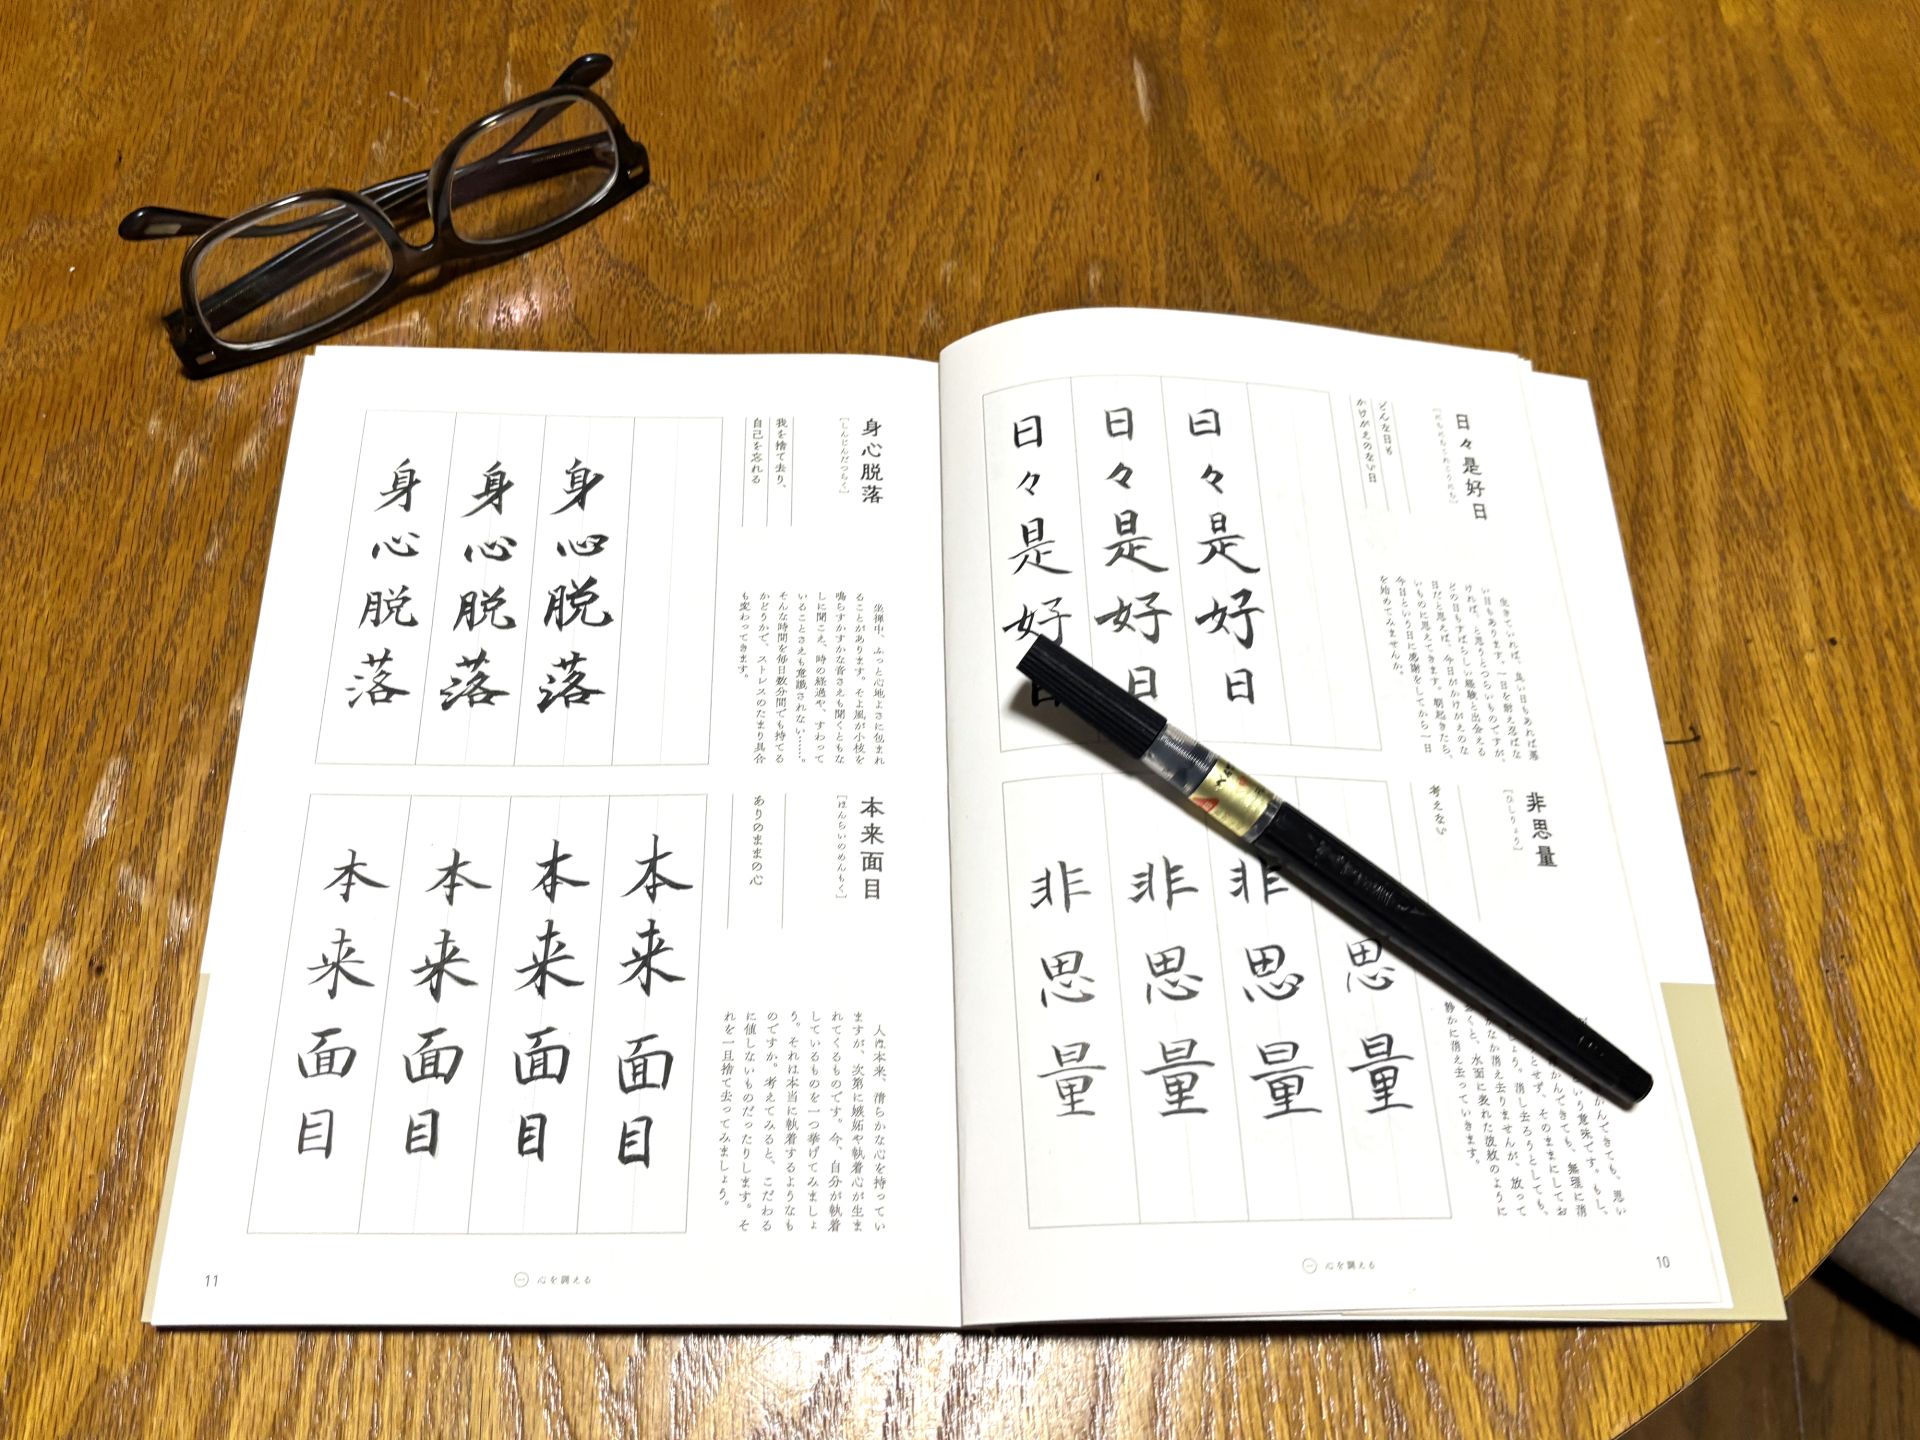 日々是好日
[にちにちこれこうにち]
どんな日も
かけがえのない日
生きていれば、良い日もあれば悪
い日もあります。一日を耐え忍ばな
ければ、と思うとつらいものですが、
どの日もすばらしい経験と出会える
日だと思えば、今日がかけがえのな
いものに思えてきます。朝起きたら、
今日という日に感謝をしてから一日
を始めてみませんか。
日々是好日
日々是好日
日々是好日
非思量
[ひしりょう]
考えない
かんできても、思い
という意味です。もし、
かんできても、無理に消
とせず、そのままにしてお
しょう。消し去ろうとしても、
なか消え去りませんが、放って
くと、水面に表れた波紋のように
静かに消え去っていきます。
思量
非思量
非思量
非思量
一 心を調える
10
身心脱落
[しんじんだつらく]
我を捨て去り、
自己を忘れる
坐禅中、ふっと心地よさに包まれ
ることがあります。そよ風が小枝を
鳴らすかすかな音さえも聞くともな
しに聞こえ、時の経過や、すわって
いることさえも意識されない……。
そんな時間を毎日数分間でも持てる
かどうかで、ストレスのたまり具合
も変わってきます。
身心脱落
身心脱落
身心脱落
本来面目
[ほんらいのめんもく]
ありのままの心
人は本来、清らかな心を持ってい
ますが、次第に嫉妬や執着心が生ま
れてくるものです。今、自分が執着
しているものを一つ挙げてみましょ
う。それは本当に執着するようなも
のですか。考えてみると、こだわる
に値しないものだったりします。そ
れを一旦捨て去ってみましょう。
本来面目
本来面目
本来面目
本来面目
一 心を調える
11